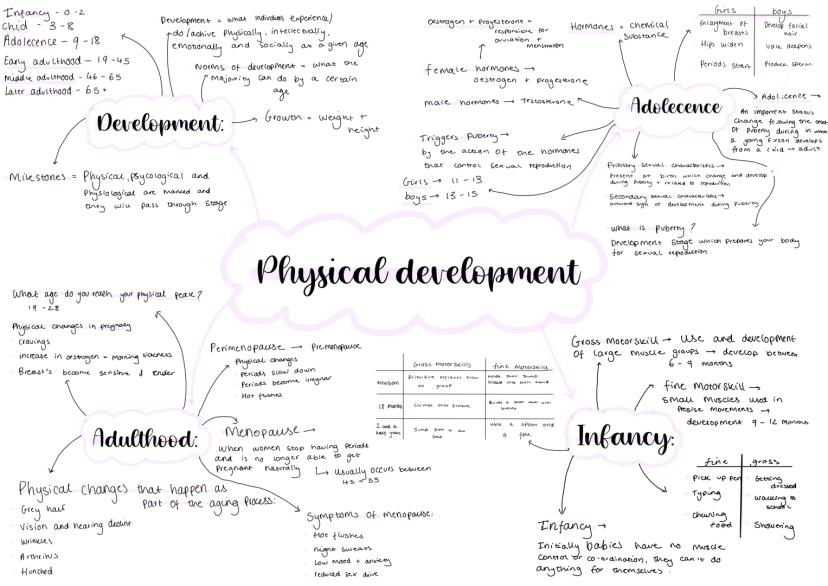 Infancy - 0-2
Chid - 3-8
Adolecence - 9-18
Early adulthood - 19-45
Middle adulthood - 46-65
Later adulthood - 65+
Development = what individuals experience/
do/achive physically, intellectually,
emotionally and socially as a given age
Norms of development = what the
majority can do by a certain
age
Development:
Growth = weight +
height
Milestones = Physical, psycological and
Physiological are marked and
they will pass through stage
Oestrogen + Progesterone =
responsible for
ovulation +
menstruation
Hormones = chemical
substance
female hormones →
oestrogen + progesterone
male hormones → Testosterone
Triggers Puberty →
by the action of the hormones
that control sexual reproduction
Girls → 11-13
boys → 13-15
Adolecence
Girls boys
Enlargment of
breasts
Develop facial
hair
Hips widen
voice deepens
Periods start
Produce sperm
Adolicence →
An important status
change following the onset
of puberty during in what
a young person develops
from a child → adult
Primary sexual characteristics →
Present at birth which change and develop
during puberty + related to reproduction
Secondary sexual characteristics →
outward sign of development during puberty
What is puberty?
Development stage which prepares your body
for sexual reproduction
Physical development
What age do you reach your physical peak?
19-28
Physical changes in pregnacy
cravings
increase in oestrogen = morning sickness
Breast's become sensitive & tender
Adulthood:
Perimenopause → Premenopause
Physical changes
Periods slow down
Periods become irregular
Hot flushes
Menopause →
When women stop having periods
and is no longer able to get
pregnant naturally
↳ Usually occurs between
45-55
Physical changes that happen as
part of the ageing process:
Grey hair
Vision and hearing decline
Wrinkles
Arthritus
Hunched
Symptoms of menopause:
Hot flushes
night sweats
low mood + anxiety
reduced sex drive
Gross motorskills fine motorskills
Newborn
Primitive reflexes such
as grasp
18 months
Climbs onto furniture
2 and a
half years
Jump from a low
step
uses a spoon and
a fork
Infancy:
Gross motorskill → Use and development
of large muscle groups → develop between
6-9 months
fine motorskill →
small muscles used in
Precise movements →
development 9-12 months
fine gross
Pick up pen
Getting
dressed
Typing
walking to
school
chewing
food
Showering
Infancy →
Initially babies have no muscle
control or co-ordination, they can't do
anything for themselves.